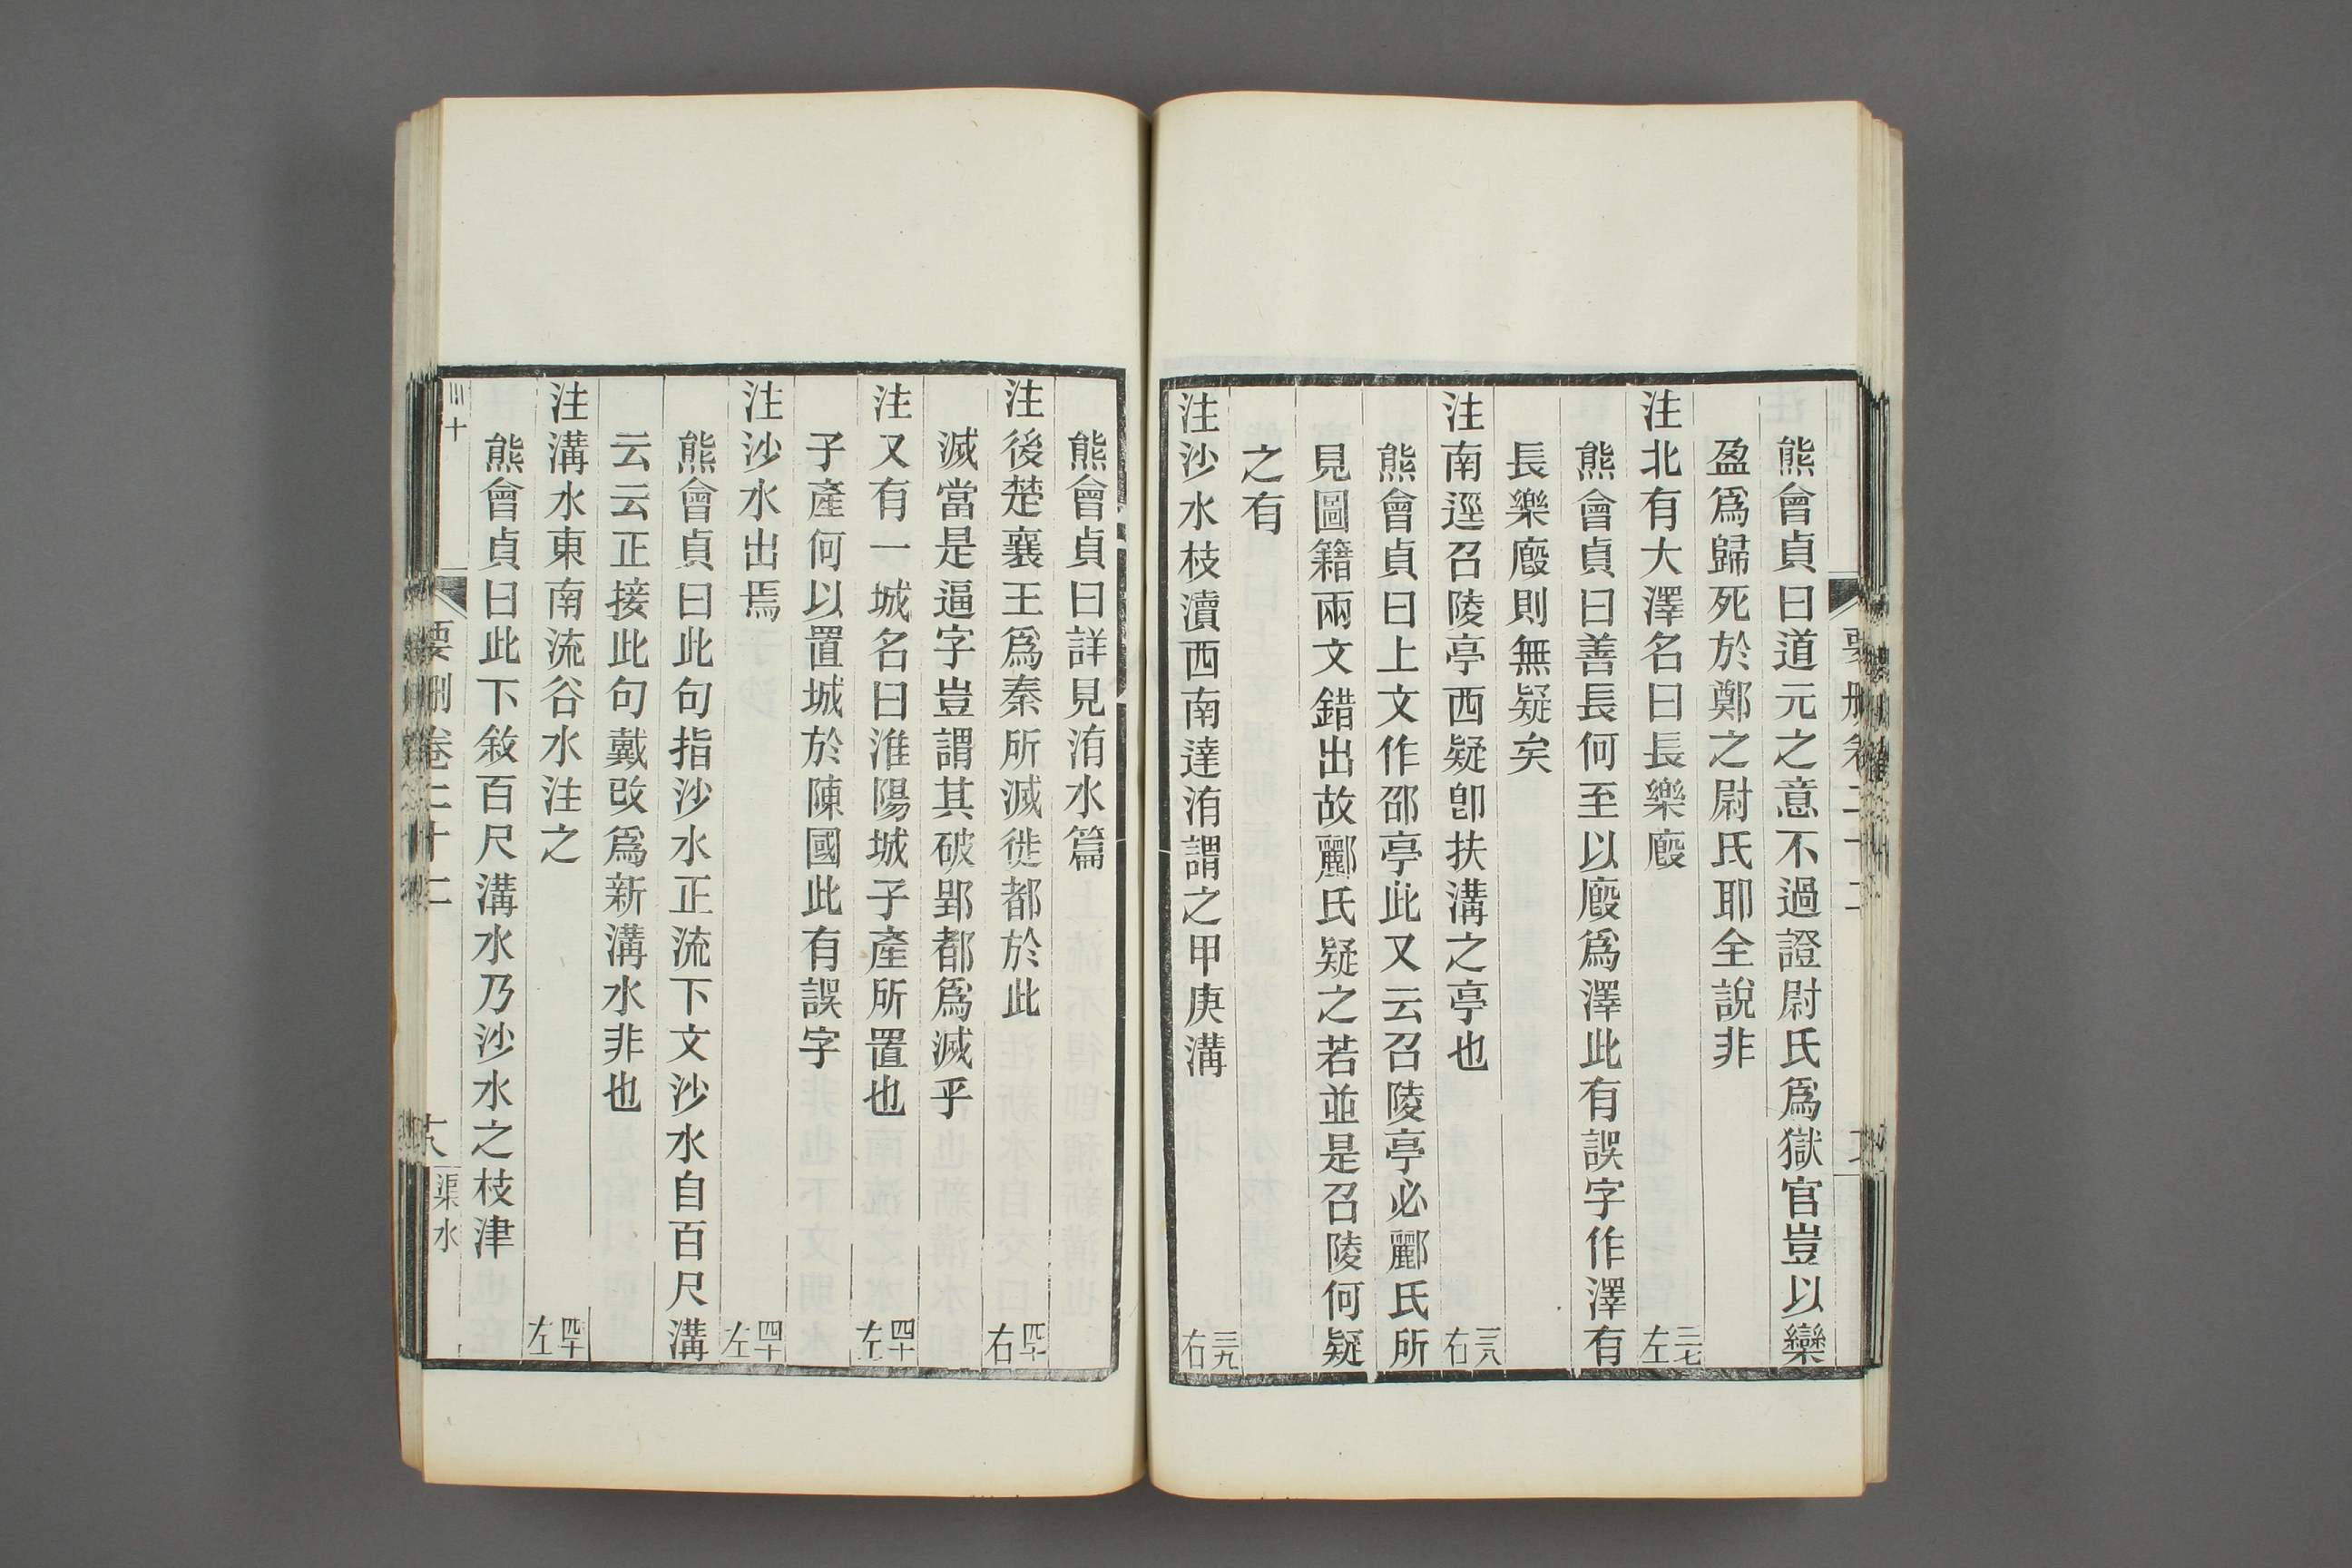 熊會貞曰道元之意不過證尉氏爲獄官豈以欒
盈爲歸死於鄭之尉氏耶全說非
注北有大澤名曰長樂廄 三七左
熊會貞曰善長何至以廄爲澤此有誤字作澤有
長樂廄則無疑矣
注南逕召陵亭西疑卽扶溝之亭也 三八右
熊會貞曰上文作邵亭此又云召陵亭必酈氏所
見圖籍兩文錯出故酈氏疑之若並是召陵何疑
之有
注沙水枝瀆西南達洧謂之甲庚溝 三九右
熊會貞曰詳見洧水篇
注後楚襄王爲秦所滅徙都於此 四十右
滅當是逼字豈謂其破郢都爲滅乎
注又有一城名曰淮陽城子產所置也 四十左
子產何以置城於陳國此有誤字
注沙水出焉 四十左
熊會貞曰此句指沙水正流下文沙水自百尺溝
云云正接此句戴改爲新溝水非也
注溝水東南流谷水注之 四十左
熊會貞曰此下敘百尺溝水乃沙水之枝津
要刪卷二十二 十八 渠水